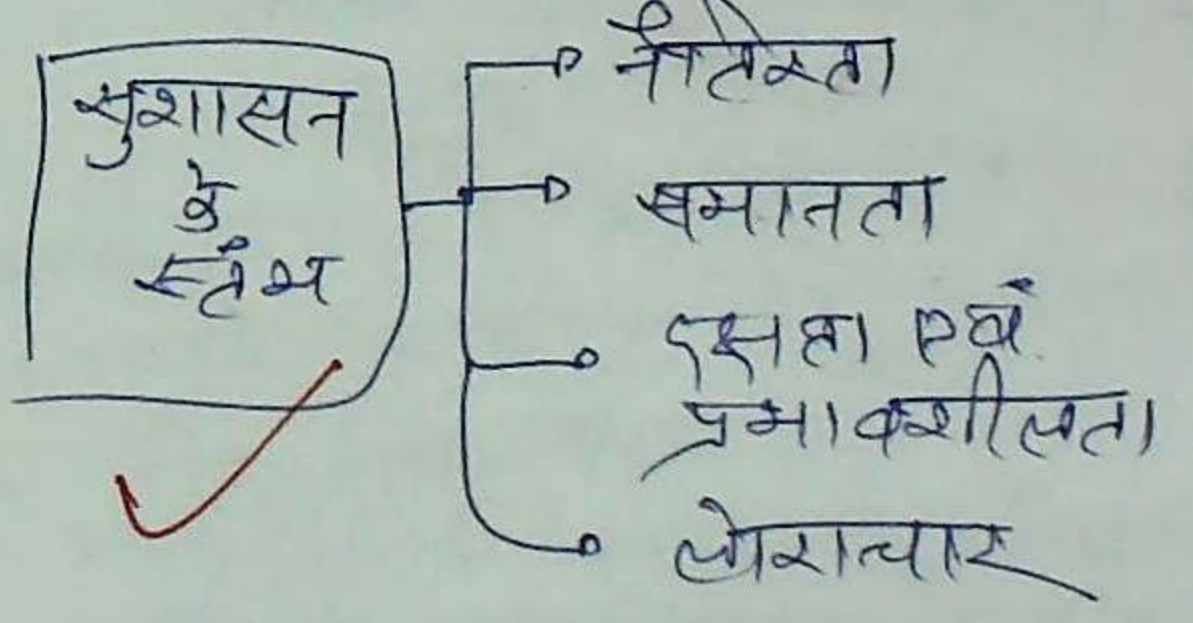 सुशासन
के
स्तंभ
नैतिकता
समानता
दक्षता एवं
प्रभावशीलता
लोकाचार